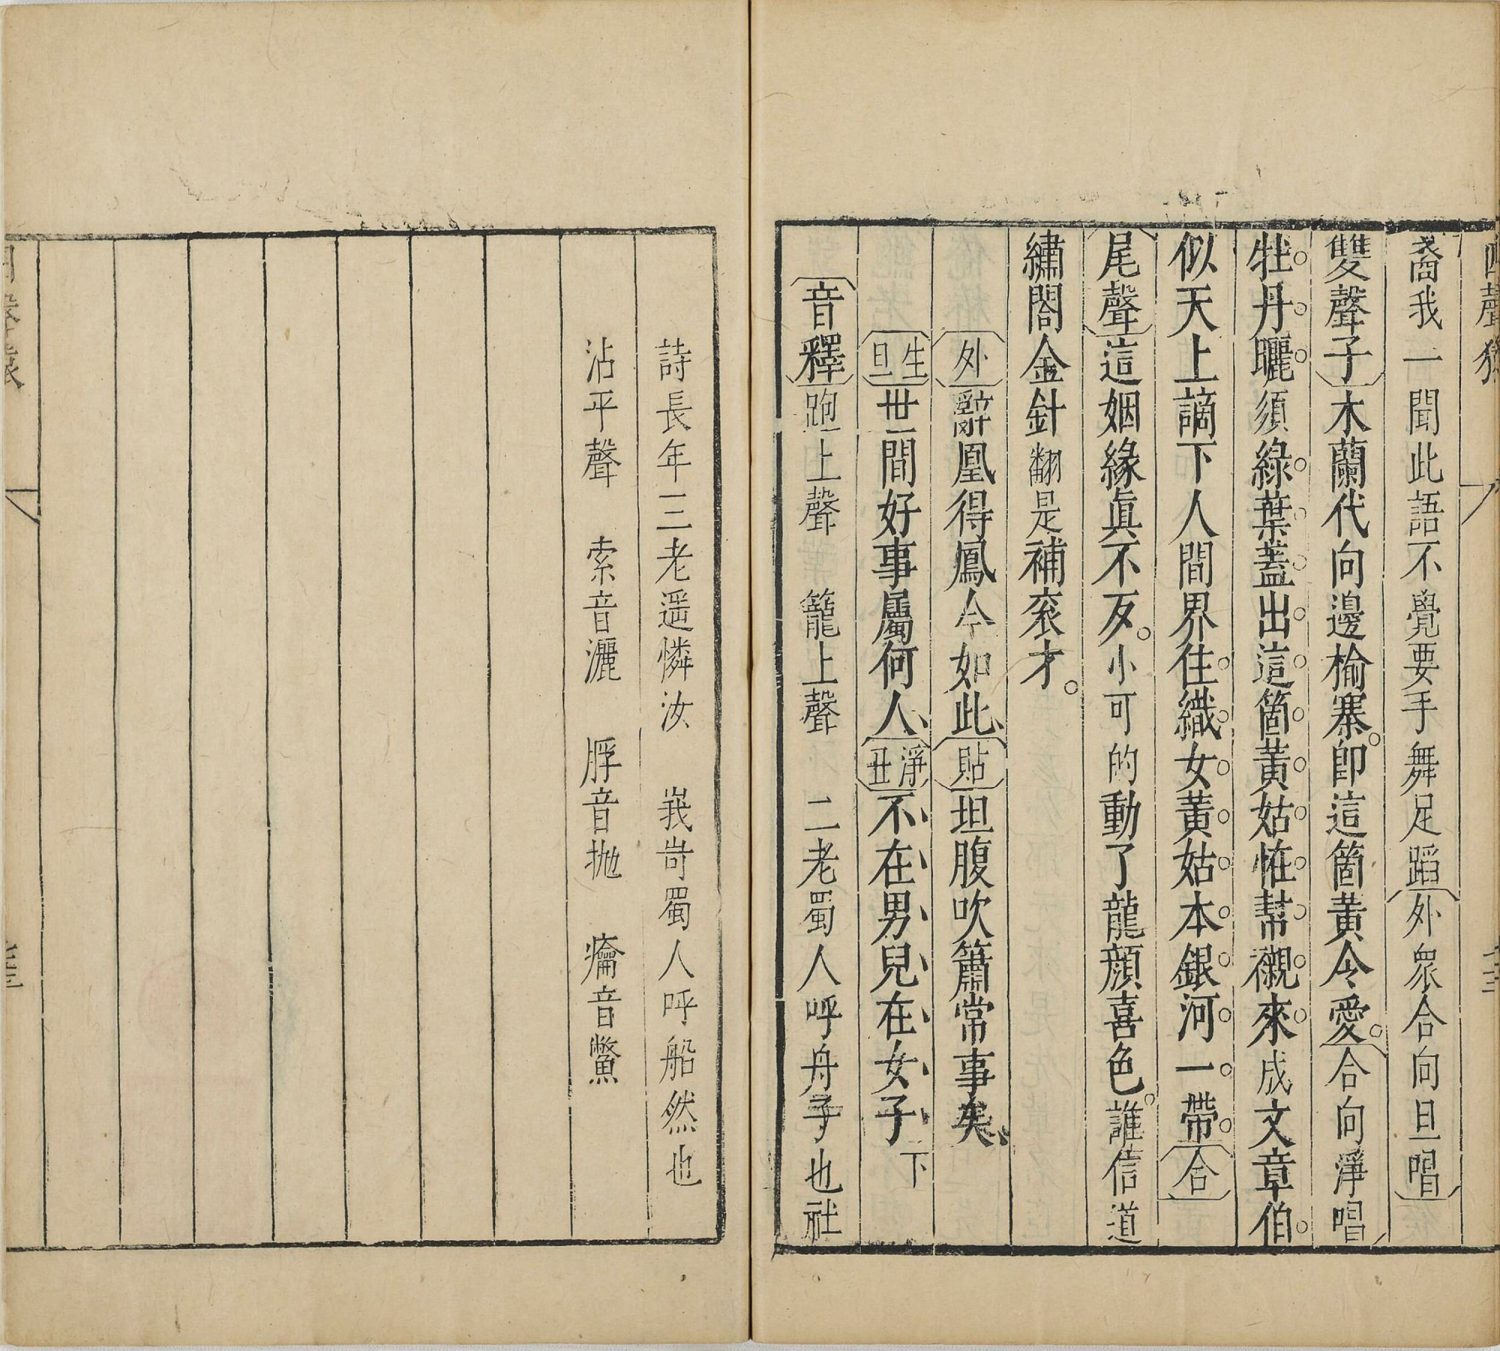 四聲猿
矞我一聞此語不覺要手舞足蹈外衆合向旦唱
雙聲子木蘭代向邊榆寨卽這箇黃令愛合向淨唱
牡丹曬須綠葉蓋出這箇黃姑怪幇襯來成文章伯
似天上謫下人間界住織女黃姑本銀河一帶合
尾聲這姻緣眞不反小可的動了龍顏喜色誰信道
繡閣金針翻是補袞才
外辭凰得鳳今如此貼坦腹吹簫常事矣
生旦世間好事屬何人淨丑不在男兒在女子下
音釋跑上聲 籠上聲 二老蜀人呼舟子也社
詩長年三老遥憐汝 峩岢蜀人呼船然也
沾平聲 索音灑 脬音抛 癟音鱉